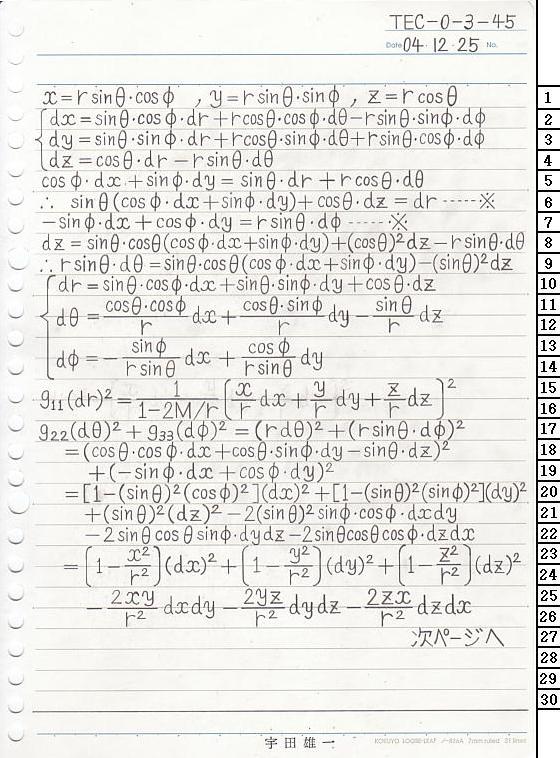 TEC-0-3-45
Date 04・12・25 No.
x=r sinθ・cosφ , y=r sinθ・sinφ , z=r cosθ 1
dx=sinθ・cosφ・dr+rcosθ・cosφ・dθ-rsinθ・sinφ・dφ 2
dy=sinθ・sinφ・dr+rcosθ・sinφ・dθ+rsinθ・cosφ・dφ 3
dz=cosθ・dr-rsinθ・dθ 4
cosφ・dx+sinφ・dy=sinθ・dr+rcosθ・dθ 5
∴ sinθ(cosφ・dx+sinφ・dy)+cosθ・dz=dr-----※ 6
-sinφ・dx+cosφ・dy=rsinθ・dφ-----※ 7
dz=sinθ・cosθ(cosφ・dx+sinφ・dy)+(cosθ)²dz-rsinθ・dθ 8
∴ rsinθ・dθ=sinθ・cosθ(cosφ・dx+sinφ・dy)-(sinθ)²dz 9
dr=sinθ・cosφ・dx+sinθ・sinφ・dy+cosθ・dz 10
dθ=cosθ・cosφ/r dx+cosθ・sinφ/r dy-sinθ/r dz 11 12
dφ=-sinφ/rsinθ dx+cosφ/rsinθ dy 13 14
g₁₁(dr)²=1/1-2M/r [x/r dx+y/r dy+z/r dz]² 15 16
g₂₂(dθ)²+g₃₃(dφ)²=(rdθ)²+(rsinθ・dφ)² 17
=(cosθ・cosφ・dx+cosθ・sinφ・dy-sinθ・dz)² 18
+(-sinφ・dx+cosφ・dy)² 19
=[1-(sinθ)²(cosφ)²](dx)²+[1-(sinθ)²(sinφ)²](dy)² 20
+(sinθ)²(dz)²-2(sinθ)²sinφ・cosφ・dxdy 21
-2sinθcosθsinφ・dydz-2sinθcosθcosφ・dzdx 22
=[1-x²/r²](dx)²+[1-y²/r²](dy)²+[1-z²/r²](dz)² 23 24
-2xy/r² dxdy-2yz/r² dydz-2zx/r² dzdx 25 26
次ページへ 27
28
29
30
宇田雄一 KOKUYO LOOSE-LEAF ノ-836A 7mm ruled 31 lines